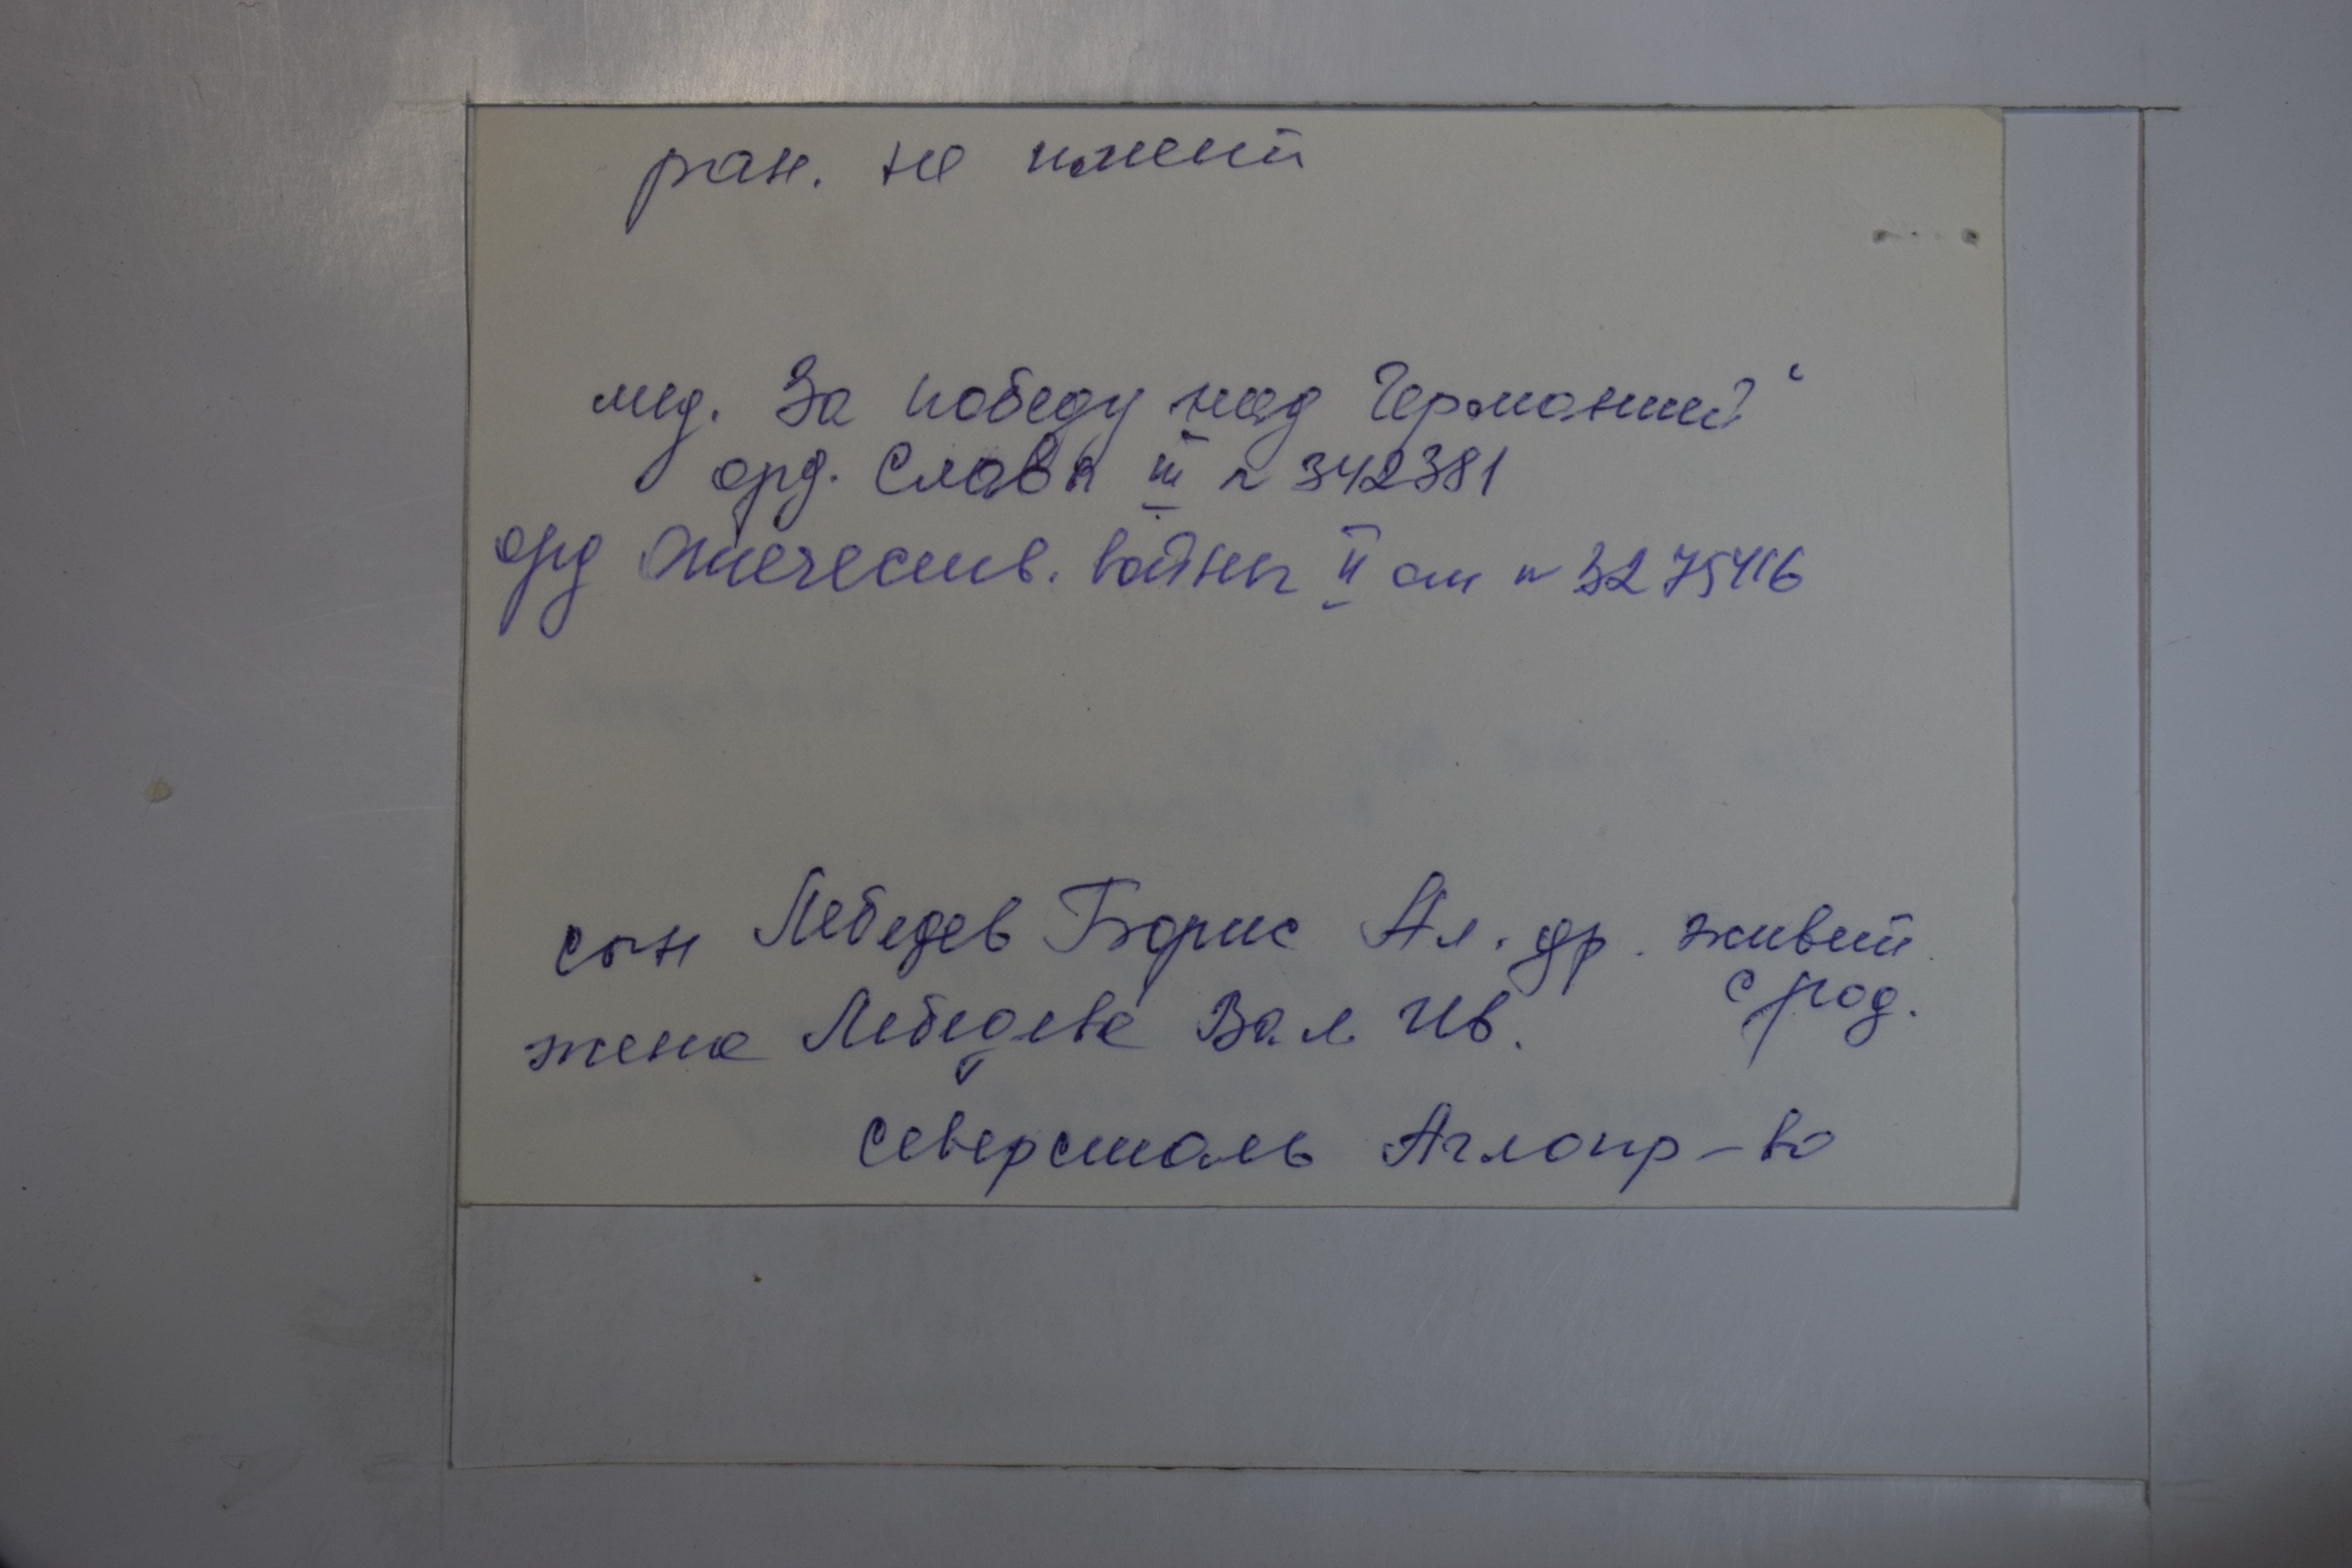 ран. не имеет
мед. За победу над Германией“
орд. Славы III № 342381
орд Отечеств. войны II ст № 3275416
сын Лебедев Борис Ал.др. живет
с род.
жена Лебедева Вал Ив.
Северсталь Аглопр-во